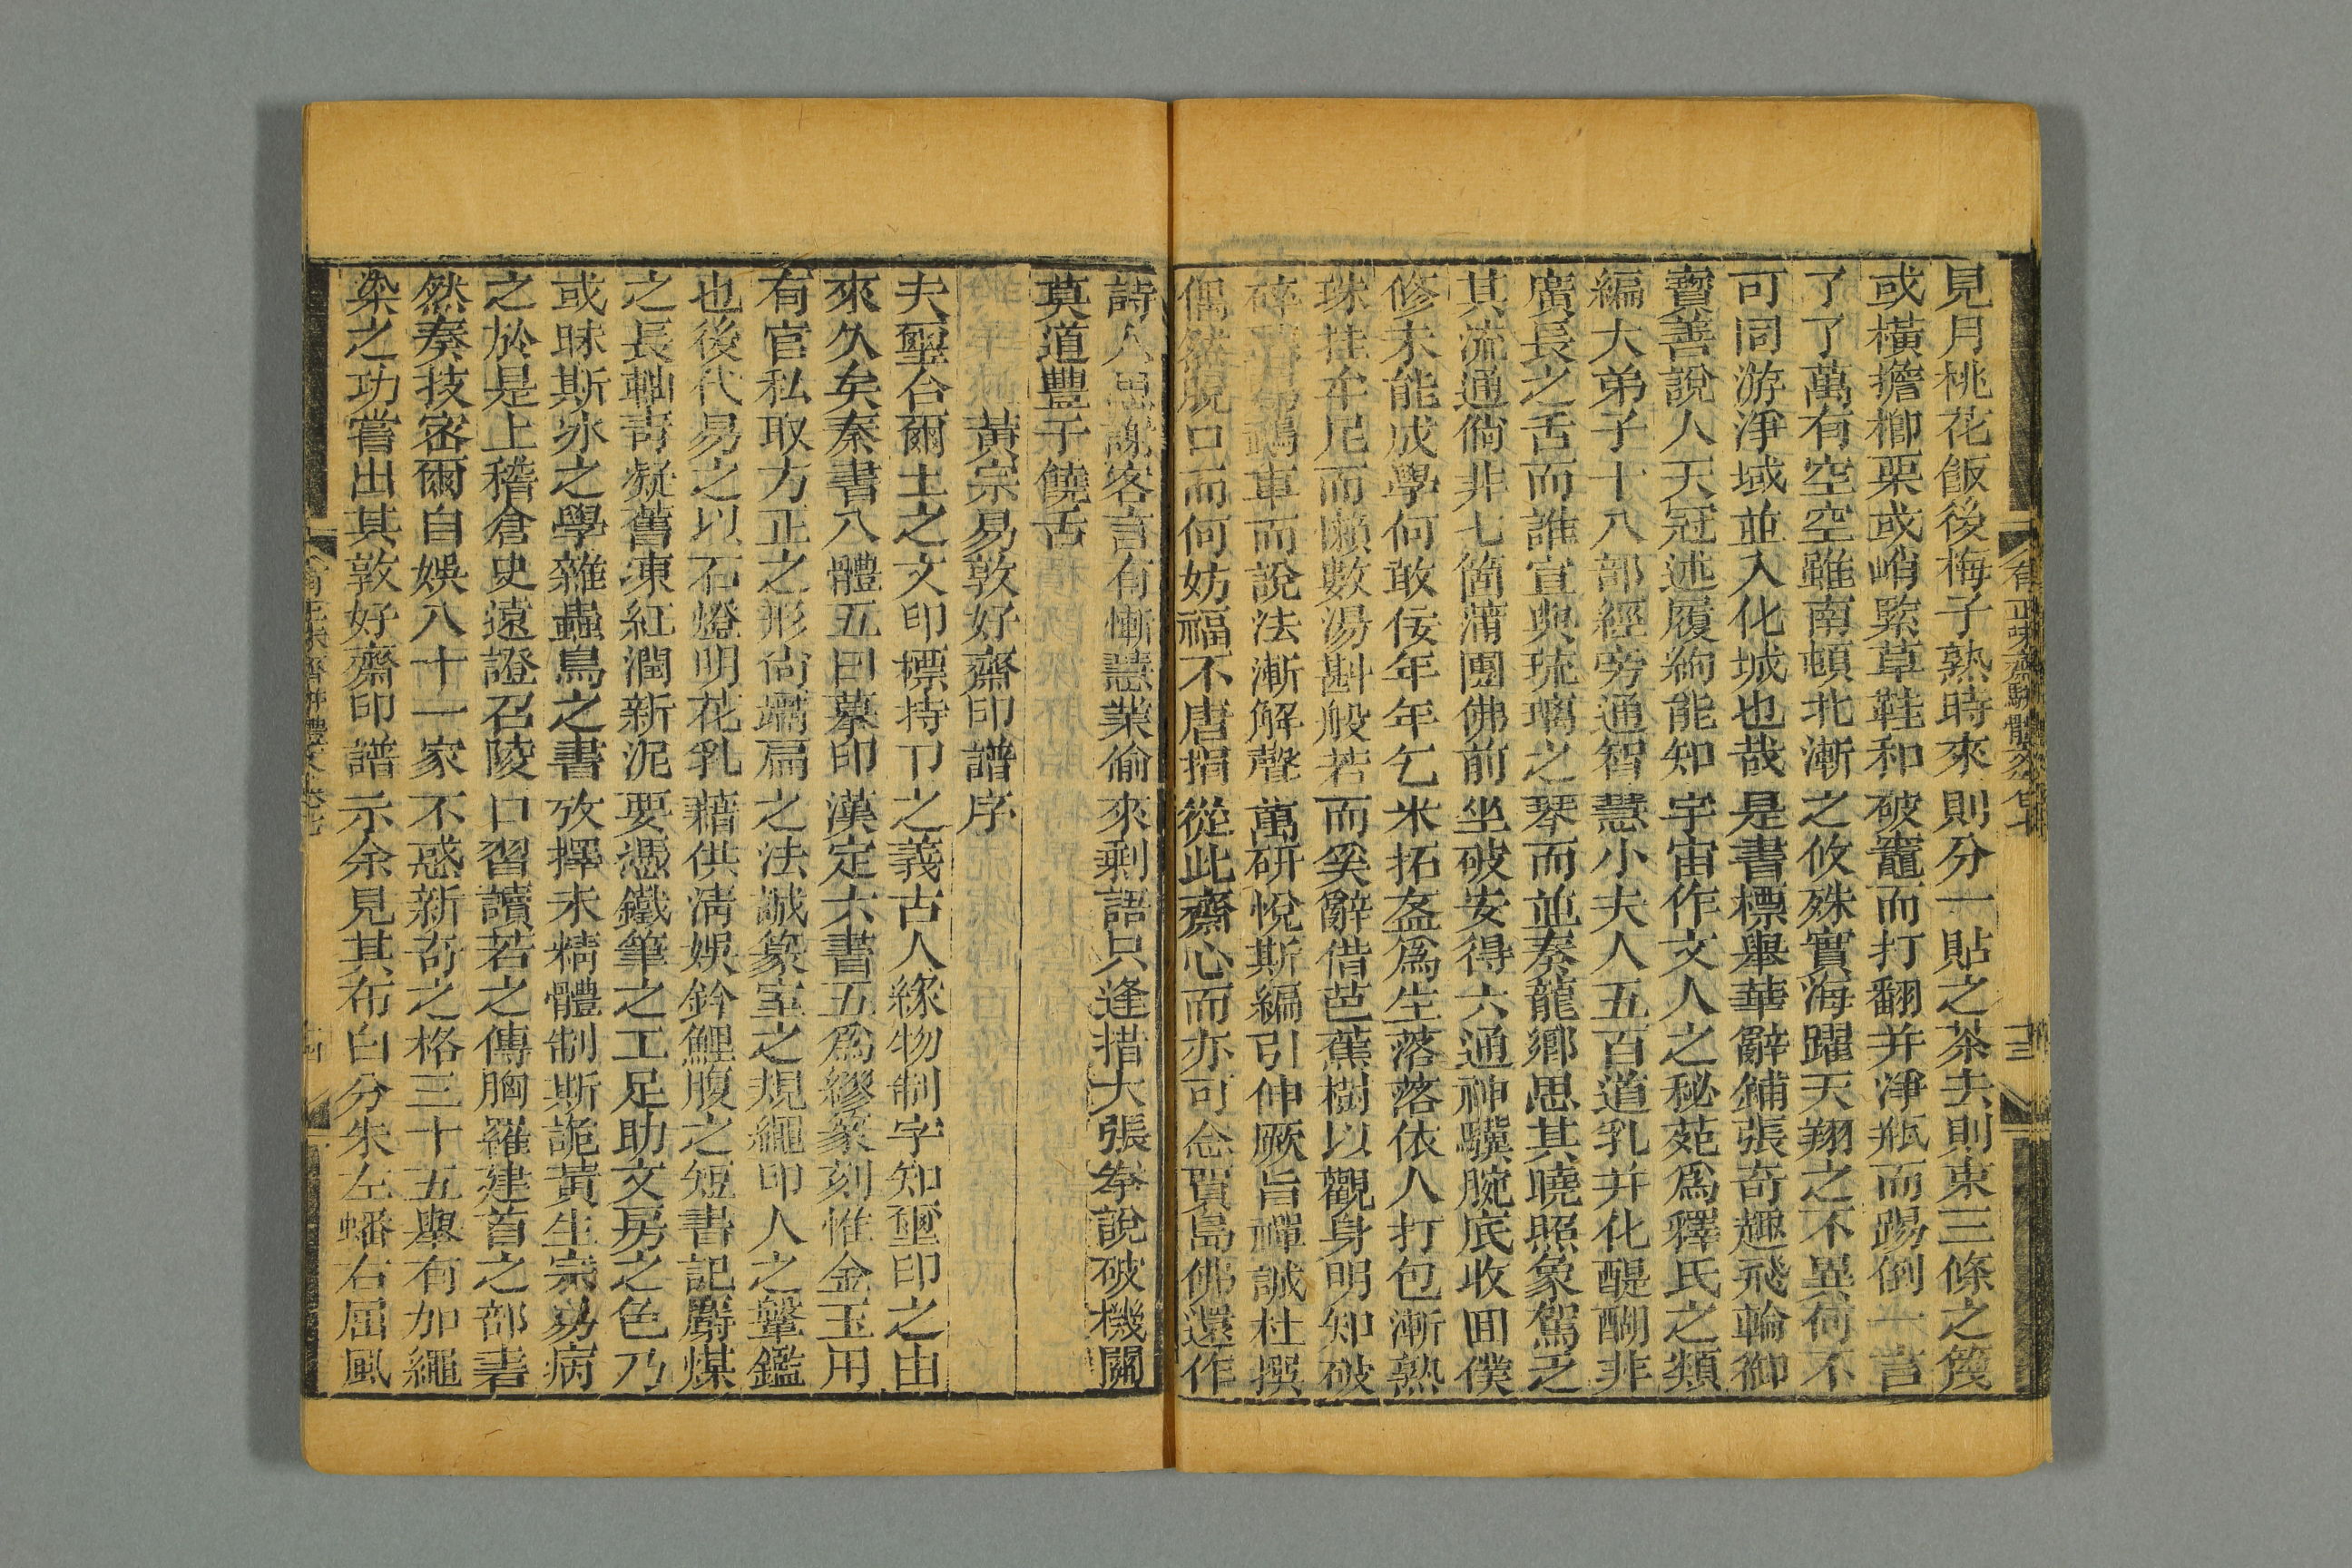 有正味齋駢體文 卷七
十三
見月桃花飯後梅子熟時來則分一貼之茶去則束三條之篾
或橫擔櫛栗或峭緊草鞋和破竈而打翻并淨瓶而踢倒一言
了了萬有空空雖南頓北漸之攸殊實海躍天翔之不異何不
可同游淨域並入化城也哉是書標舉華辭鋪張奇趣飛輪御
寶善說人天冠述履絇能知宇宙作文人之秘苑爲釋氏之類
編大弟子十八部經旁通智慧小夫人五百道乳并化醍醐非
廣長之舌而誰宣與琉璃之琴而並奏龍鄉思其曉照象駕乏
其流通倘非七箇蒲團佛前坐破安得六通神驥腕底收回僕
修未能成學何敢佞年年乞米拓盔爲生落落依人打包漸熟
珠挂牟尼而懶數湯斟般若而奚辭借芭蕉樹以觀身明知破
碎 車而說法漸解聲萬研悅斯編引伸厥旨禪誠杜撰
偶然脫口而何妨福不唐捐從此齋心而亦可念賈島佛還作
詩人思謝客言有慚慧業偷來剩語只逢措大張拳說破機關
莫道豐干饒舌
黃宗易敦好齋印譜序
夫璽台爾土之文印標持卪之義古人緣物制字知璽印之由
來久矣秦書八體五曰摹印漢定六書五爲繆篆刻惟金玉用
有官私取方正之形尙壖扁之法誠篆室之規繩印人之鞶鑑
也後代易之以石燈明花乳藉供淸娛鈴鯉腹之短書記麝煤
之長軸靑凝舊凍紅潤新泥要憑鐵筆之工足助文房之色乃
或昧斯冰之學雜蟲鳥之書攷擇未精體制斯詭黃生宗易病
之於是上稽倉史遠證召陵口習讀若之傳胸羅建首之部書
然奏技宻爾自娛八十一家不惑新奇之格三十五舉有加繩
染之功嘗出其敦好齋印譜示余見其布白分朱左蟠右屈風
有正味齋駢體文 卷七
十四